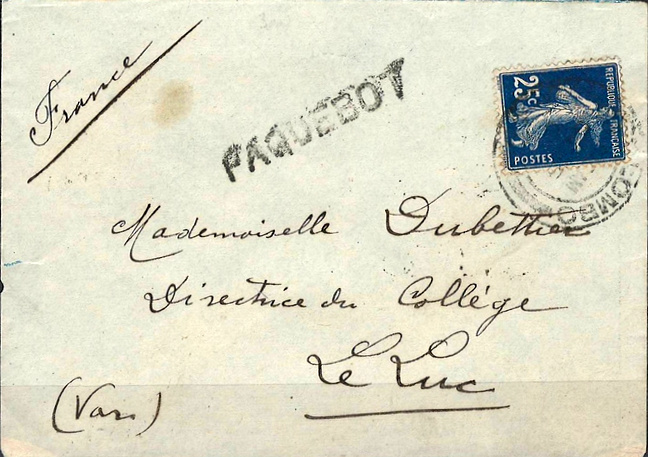 France
PAQUEBOT
REPUBLIQUE FRANÇAISE
25c
POSTES
COLOMBO
Mademoiselle Dubettier
Directrice du Collége
Le Luc
(Var)